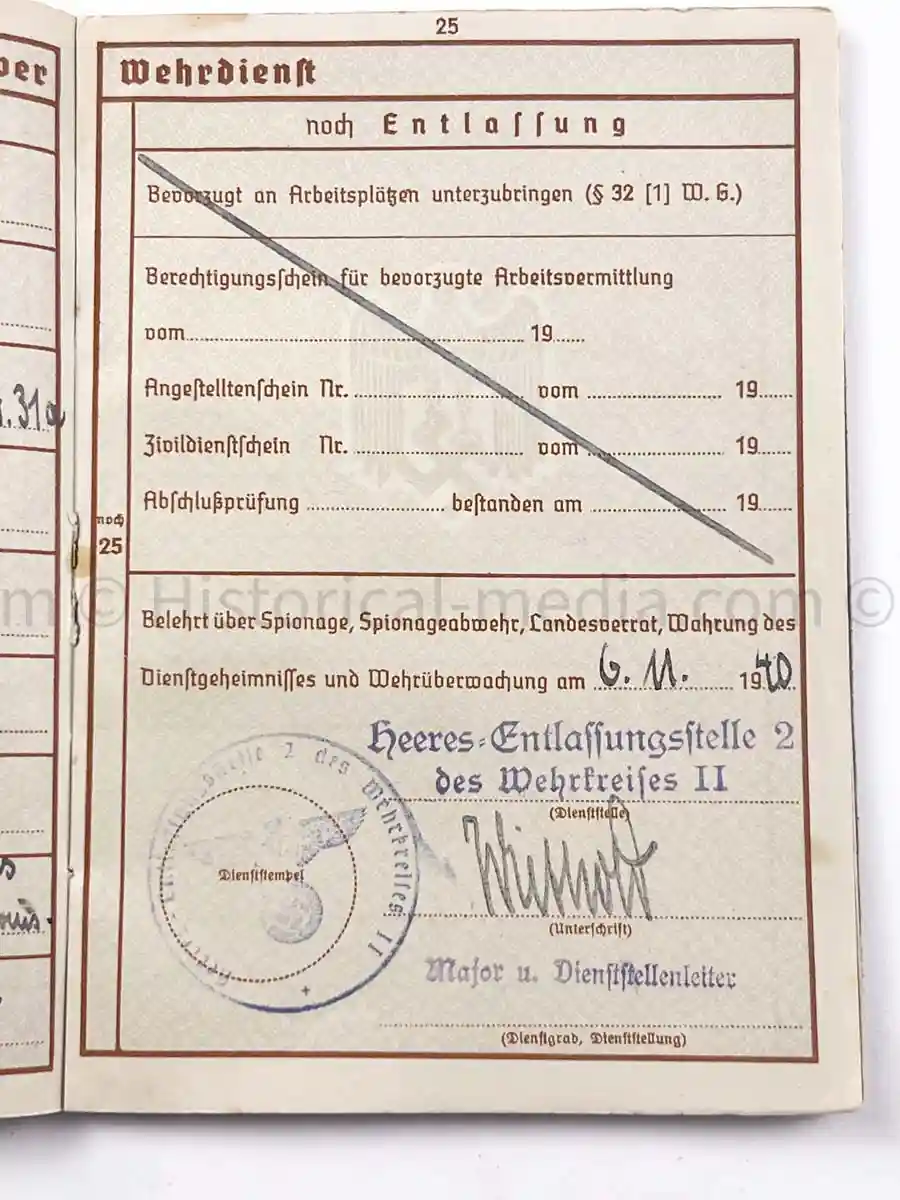 25
Wehrdienst
noch Entlassung
Bevorzugt an Arbeitsplätzen unterzubringen (§ 32 [1] W. G.)
Berechtigungsschein für bevorzugte Arbeitsvermittlung
vom 19
Angestelltenschein Nr. vom 19
Zivildienstschein Nr. vom 19
Abschlußprüfung bestanden am 19
noch
25
m © Historical-media.com ©
Belehrt über Spionage, Spionageabwehr, Landesverrat, Wahrung des
Dienstgeheimnisses und Wehrüberwachung am 6. 11. 1940
Heeres-Entlassungsstelle 2
des Wehrkreises II
(Dienststelle)
Heeres-Entlassungsstelle 2 des Wehrkreises II
Dienststempel
(Unterschrift)
Major u. Dienststellenleiter
(Dienstgrad, Dienststellung)